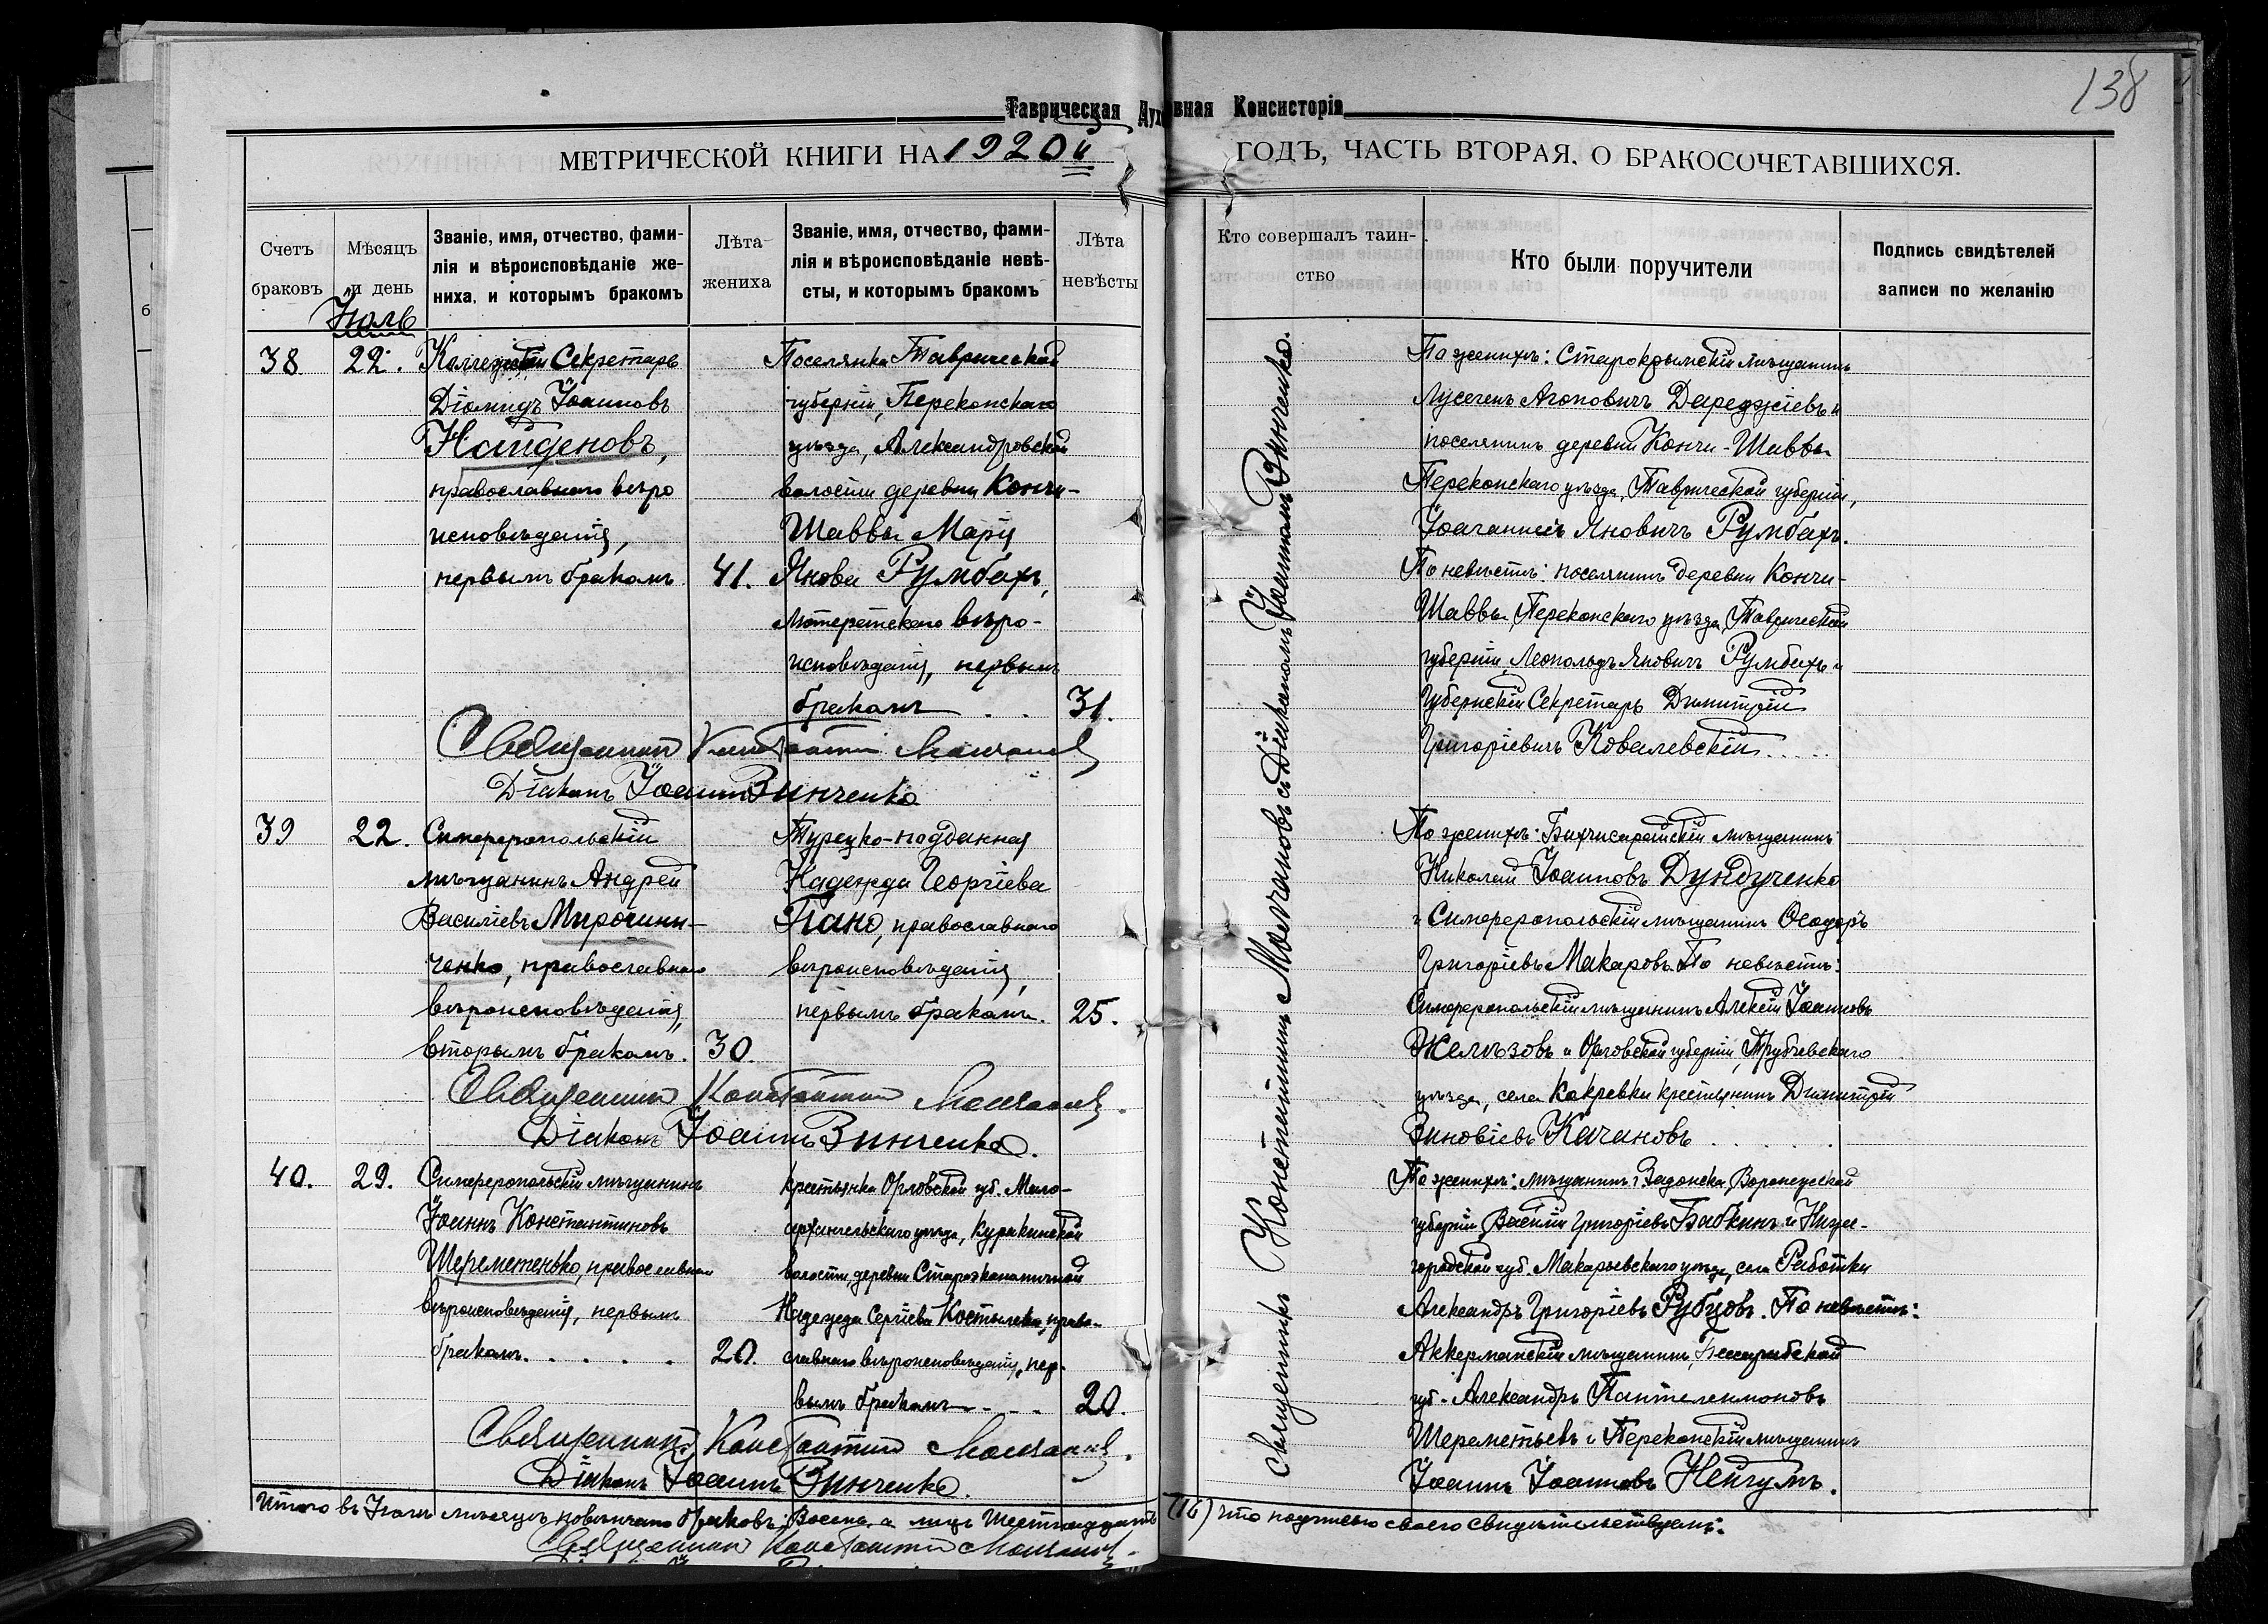 138
Таврическая Духовная Консисторія
МЕТРИЧЕСКОЙ КНИГИ НА 1920й ГОДЪ, ЧАСТЬ ВТОРАЯ, О БРАКОСОЧЕТАВШИХСЯ.
Счетъ браковъ
Мѣсяцъ и день
Званіе, имя, отчество, фами-
лія и вѣроисповѣданіе же-
ниха, и которымъ бракомъ
Лѣта жениха
Званіе, имя, отчество, фами-
лія и вѣроисповѣданіе невѣ-
сты, и которымъ бракомъ
Лѣта невѣсты
Кто совершалъ таин-
ство
Кто были поручители
Подпись свидѣтелей
записи по желанію
Июль
38
22.
Коллежскій Секретарь
Діомидъ Іоанновъ
Найденовъ,
православнаго вѣро
исповѣданія,
первымъ бракомъ
41.
Поселянка Таврической
губерніи, Перекопскаго
уѣзда, Александровской
волости деревни Кончи-
Шаввы Марія
Янова Румбахъ,
лютеранскаго вѣро-
исповѣданія, первымъ
бракомъ
31.
Священникъ Константинъ Молчановъ
Діаконъ Іоаннъ Зинченко
39
22.
Симферопольскій
мѣщанинъ Андрей
Василіевъ Мирошни-
ченко, православнаго
вѣроисповѣданія,
вторымъ бракомъ.
30.
Турецко-подданная
Надежда Георгіева
Пано, православнаго
вѣроисповѣданія,
первымъ бракомъ.
25.
Священникъ Константинъ Молчановъ.
Діаконъ Іоаннъ Зинченко.
40.
29.
Симферопольскій мѣщанинъ
Іоаннъ Константиновъ
Шеременько, православнаго
вѣроисповѣданія, первымъ
бракомъ.
20.
Крестьянка Орловской губ. Мало-
архангельскаго уѣзда, Куракинской
волости деревни
Надежда Сергіева Костылева, право-
славнаго вѣроисповѣданія, пер-
вымъ бракомъ
20.
Священникъ Константинъ Молчановъ.
Діаконъ Іоаннъ Зинченко.
Итого въ Іюлѣ мѣсяцѣ повѣнчано браковъ: Восемь, а лицъ Шестнадцать
Священникъ Константинъ Молчановъ
Священникъ Константинъ Молчановъ съ Діакономъ Іоанномъ Зинченко.
По женихѣ: Старокрымскій мѣщанинъ
Агоповичъ
поселянинъ деревни Кончи-Шаввы
Перекопскаго уѣзда, Таврической губерніи,
Яновичъ Румбахъ.
По невѣстѣ: поселянинъ деревни Кончи-
Шаввы, Перекопскаго уѣзда, Таврической
губерніи Леопольдъ Яновичъ Румбахъ и
Губернскій Секретарь Димитрій
Григоріевичъ Ковалевскій
По женихѣ: Бахчисарайскій мѣщанинъ
Николай Іоанновъ Дундученко
и Симферопольскій мѣщанинъ Ѳеодоръ
Григоріевъ Макаровъ. По невѣстѣ:
Симферопольскій мѣщанинъ Алексій Іоанновъ
Желѣзовъ и Орловской губерніи, Трубчевскаго
уѣзда, села Кокревки крестьянинъ Димитрій
Зиновіевъ Качановъ
По женихѣ: мѣщанинъ г. Задонска, Воронежской
губерніи Василій Григоріевъ Бабкинъ и Ниже-
городской губ. Макарьевскаго уѣзда, села Работки
Александръ Григоріевъ Рубцовъ. По невѣстѣ:
Аккерманскій мѣщанинъ, Бессарабской
губ. Александръ Пантелеимоновъ
Шереметьевъ и Перекопскій мѣщанинъ
Іоаннъ Іоанновъ Нейгумъ.
(16) что подписью своего свидѣтельствуемъ: